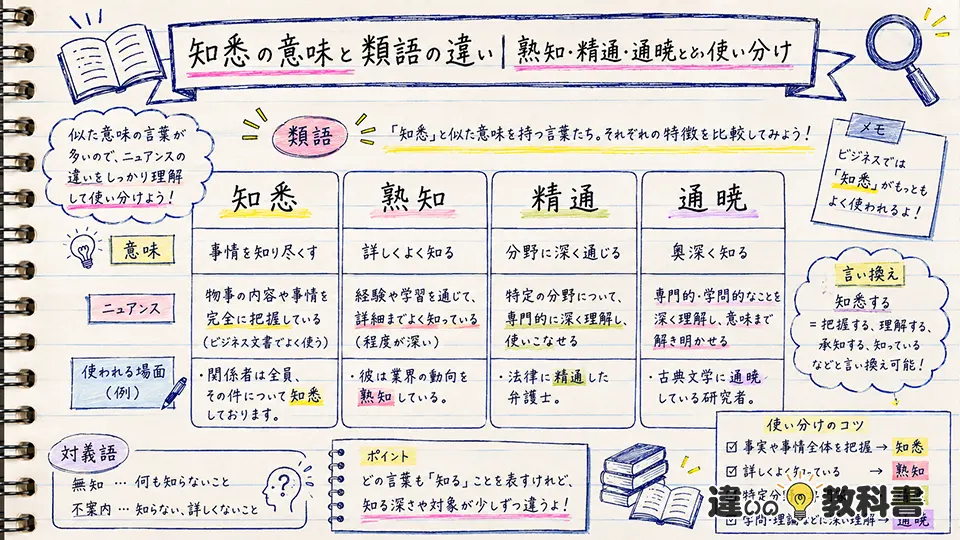 知悉の意味と類語の違い|熟知・精通・通暁との使い分け
似た意味の言葉が
多いので、ニュアンスの
違いをしっかり理解
して使い分けよう!
類語
「知悉」と似た意味を持つ言葉たち。それぞれの特徴を比較してみよう!
メモ
ビジネスでは
「知悉」がもっとも
よく使われるよ!
知悉
熟知
精通
通暁
意味
事情を知り尽くす
詳しくよく知る
分野に深く通じる
奥深く知る
ニュアンス
物事の内容や事情を
完全に把握している
(ビジネス文書でよく使う)
経験や学習を通じて、
詳細までよく知っている
(程度が深い)
特定の分野について、
専門的に深く理解し、
使いこなせる
専門的・学問的なことを
深く理解し、意味まで
解き明かせる
使われる場面
(例)
・関係者は全員、
その件について知悉
しております。
・彼は業界の動向を
熟知している。
・法律に精通した
弁護士。
・古典文学に通暁
している研究者。
言い換え
知悉する
=把握する、理解する、
承知する、知っている
などと言い換え可能!
対義語
無知 … 何も知らないこと
不案内 … 知らない、詳しくないこと
?
ポイント
どの言葉も「知る」ことを表すけれど、
知る深さや対象が少しずつ違うよ!
使い分けのコツ
☑ 事実や事情全体を把握 → 知悉
☑ 詳しくよく知っている → 熟知
特定分
☑ 学問・理論などに深い理解 → 通暁
違いの教科書